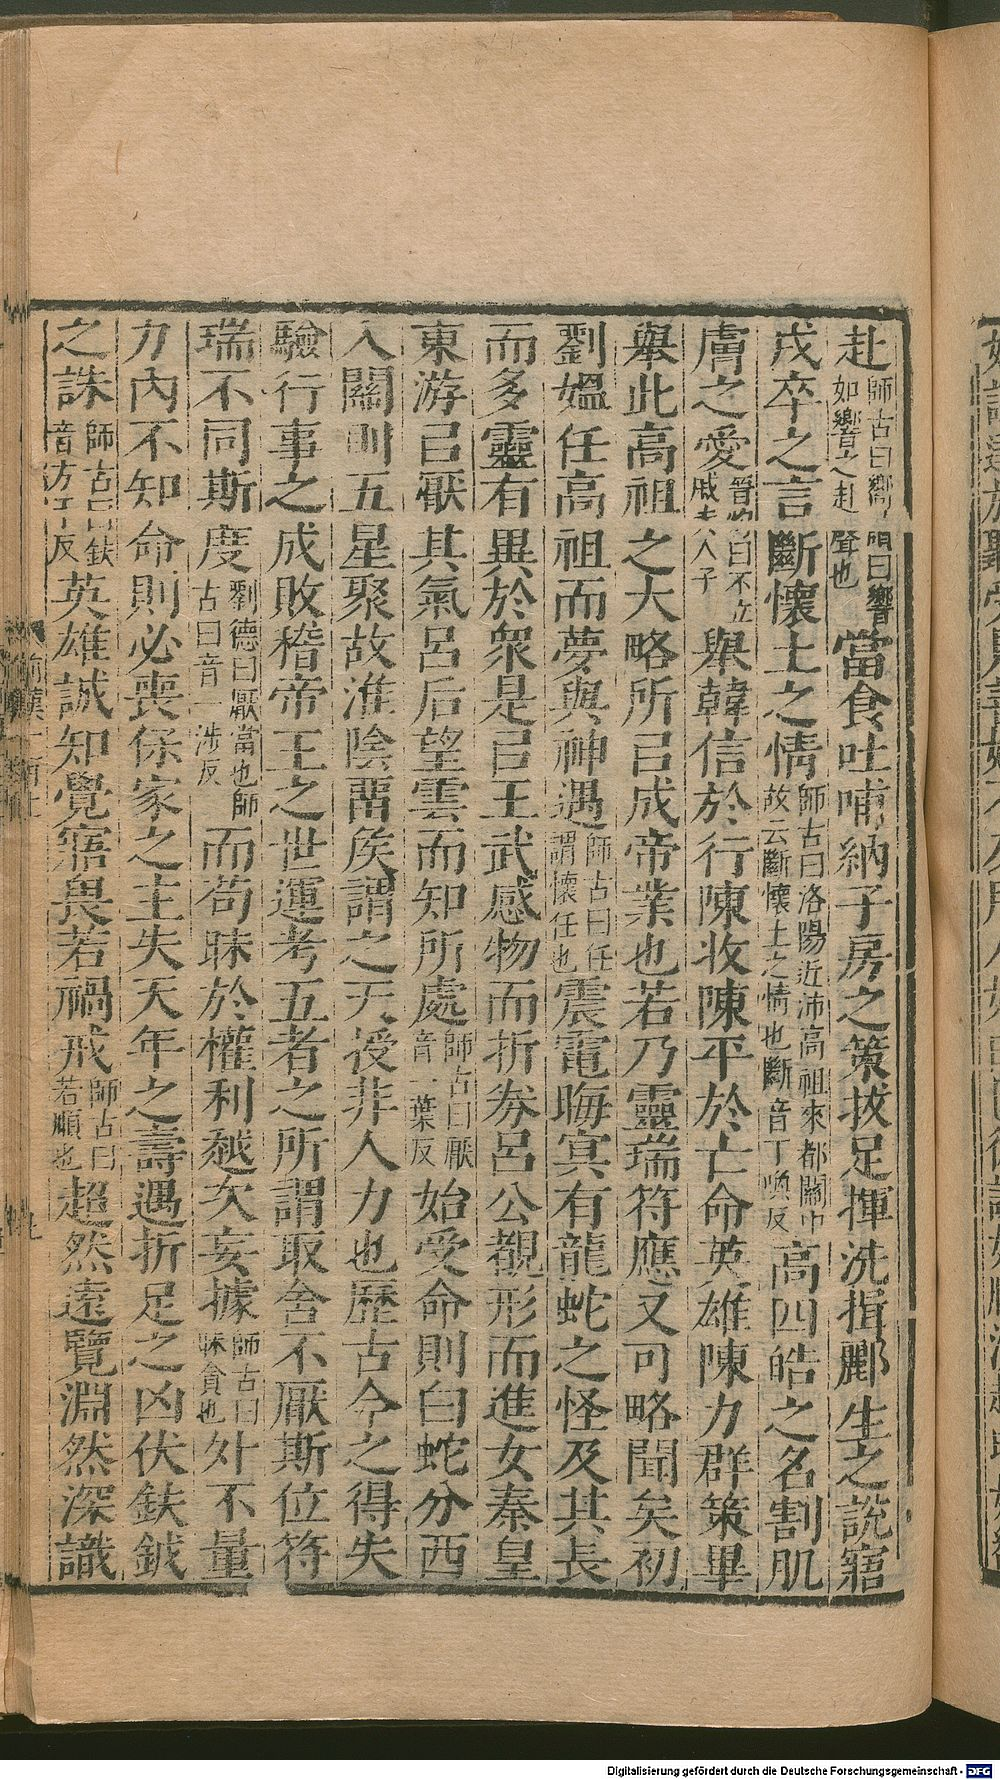 赴師古曰嚮讀曰響如響之赴聲也當食吐哺納子房之策拔足揮洗揖酈生之說寤
戍卒之言斷懷土之情師古曰洛陽近沛高祖來都關中故云斷懷土之情也斷音丁喚反高四皓之名割肌
膚之愛晉灼曰不立戚夫人子舉韓信於行陳收陳平於亡命英雄陳力群策畢
舉此高祖之大略所㠯成帝業也若乃靈瑞符應又可略聞矣初
劉媼任高祖而夢與神遇師古曰任謂懷任也震電晦冥有龍蛇之怪及其長
而多靈有異於衆是㠯王武感物而折券呂公覩形而進女秦皇
東游㠯厭其氣呂后望雲而知所處師古曰厭音一葉反始受命則白蛇分西
入關則五星聚故淮陰畱矦謂之天授非人力也歷古今之得失
驗行事之成敗稽帝王之世運考五者之所謂取舍不厭斯位符
瑞不同斯度劉德曰厭當也師古曰音一涉反而苟昧於權利越次妄據師古曰昧貪也外不量
力內不知命則必喪保家之主失天年之壽遇折足之凶伏鈇鉞
之誅師古曰鈇音方于反英雄誠知覺寤畏若禍戒師古曰若順也超然遠覽淵然深識
Digitalisierung gefördert durch die Deutsche Forschungsgemeinschaft - DFG